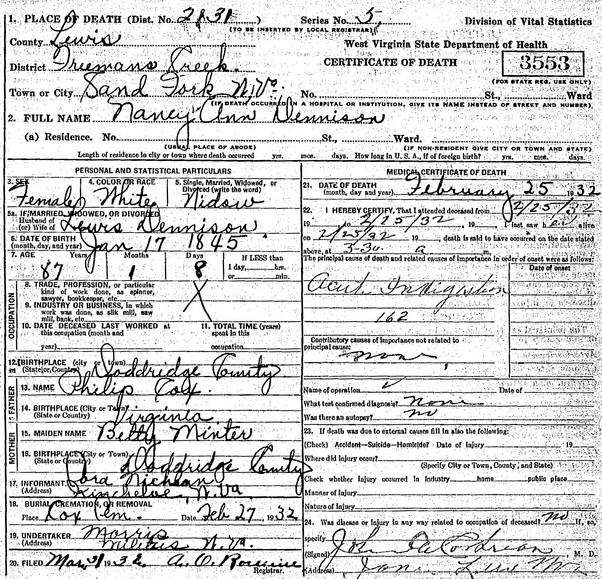 1. PLACE OF DEATH (Dist. No. 2131) Series No. 5, Division of Vital Statistics
(TO BE INSERTED BY LOCAL REGISTRAR)
County Lewis West Virginia State Department of Health
District Freemans Creek CERTIFICATE OF DEATH 3553
(FOR STATE REG. USE ONLY)
Town or City Sand Fork W.Va. No. St., Ward.
(IF DEATH OCCURRED IN A HOSPITAL OR INSTITUTION, GIVE ITS NAME INSTEAD OF STREET AND NUMBER)
2. FULL NAME Nancy Ann Dennison
(a) Residence. No. St., Ward.
(USUAL PLACE OF ABODE) (IF NON-RESIDENT GIVE CITY OR TOWN AND STATE)
Length of residence in city or town where death occurred yrs. mos. days. How long in U. S. A., if of foreign birth? yrs. mos. days.
PERSONAL AND STATISTICAL PARTICULARS
3. SEX 4. COLOR OR RACE 5. Single, Married, Widowed, or Divorced (write the word)
Female White Widow
5a. IF MARRIED, WIDOWED, OR DIVORCED
Husband of
(or) Wife of Lewis Dennison
6. DATE OF BIRTH
(month, day, and year) Jan 17 1845
7. AGE Years Months Days IF LESS than
87 1 8 1 day, hrs.
or min.
OCCUPATION
8. TRADE, PROFESSION, or particular
kind of work done, as spinner,
sawyer, bookkeeper, etc.
X
9. INDUSTRY OR BUSINESS, in which
work was done, as silk mill, saw
mill, bank, etc.
10. DATE DECEASED LAST WORKED at
this occupation (month and
year)
11. TOTAL TIME (years)
spent in this
occupation
12. BIRTHPLACE (city or town)
(State or Country) Doddridge County
FATHER
13. NAME Philip Cox
14. BIRTHPLACE (City or Town)
(State or Country) Virginia
MOTHER
15. MAIDEN NAME Betty Minter
16. BIRTHPLACE (City or Town)
(State or Country) Doddridge County
17. INFORMANT
(Address) Kincheloe, W.Va
18. BURIAL, CREMATION, OR REMOVAL
Place Cox Cem. Date Feb 27, 1932
19. UNDERTAKER Morris
(Address) W.Va.
20. FILED Mar 31 1932 A. O.
Registrar.
MEDICAL CERTIFICATE OF DEATH
21. DATE OF DEATH
(month, day, and year) February 25 1932
22. I HEREBY CERTIFY, That I attended deceased from 2/25/32
19 to 2/25/32 19 I last saw her alive on
2/25/32 19, death is said to have occurred on the date stated
above, at 3-30 a m.
The principal cause of death and related causes of importance in order of onset were as follows:
Date of onset
Acut Indigestion
162
Contributory causes of importance not related to
principal cause:
none
Name of operation Date of
What test confirmed diagnosis? none
Was there an autopsy? no
23. If death was due to external causes fill in also the following:
(Check) Accident—Suicide—Homicide? Date of Injury 19
Where did injury occur?
(Specify City or Town, County, and State)
Check whether injury occurred in Industry home public place
Manner of Injury
Nature of Injury
24. Was disease or injury in any way related to occupation of deceased? no If so,
specify
(Signed) John M. D.
(Address) Jane Lew